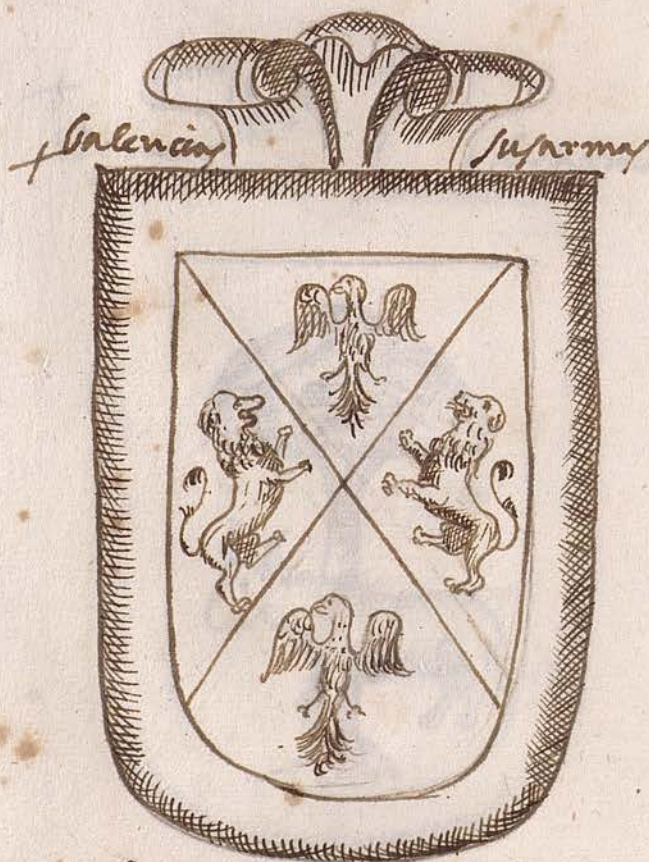 Valencias sus armas